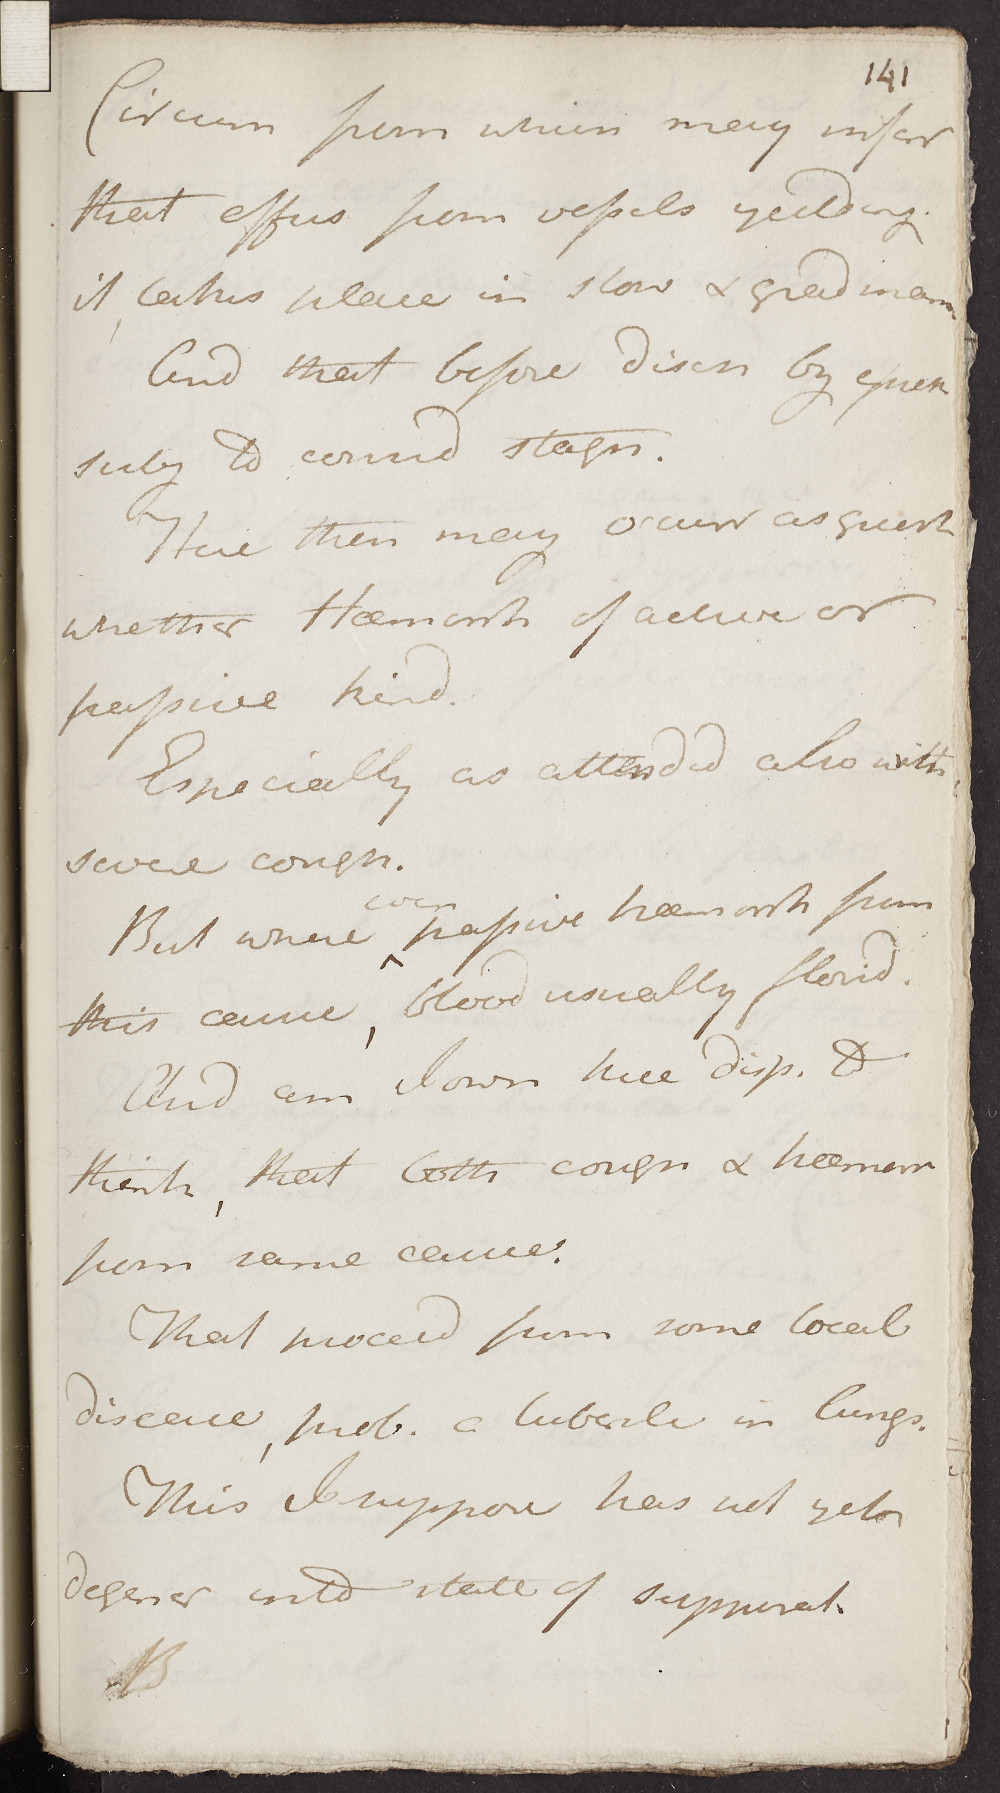 141
Circum from which may infer
that effus from vessels yeilding
it, takes place in slow & grad mann
And that before disch by expect
suby to consid stagn.
Here then may occurr as quest
whether Hæmorrh of active or
passive kind.
Especially as attended also with
severe cough.
even
But where passive hæmorrh from
this cause, blood usually florid.
And am I own here disp. to
think, that both cough & hæmorr
from same cause.
That proceed from some local
disease, prob. a tubercle in lungs.
This I suppose has not yet
degener into state of suppurat.
B